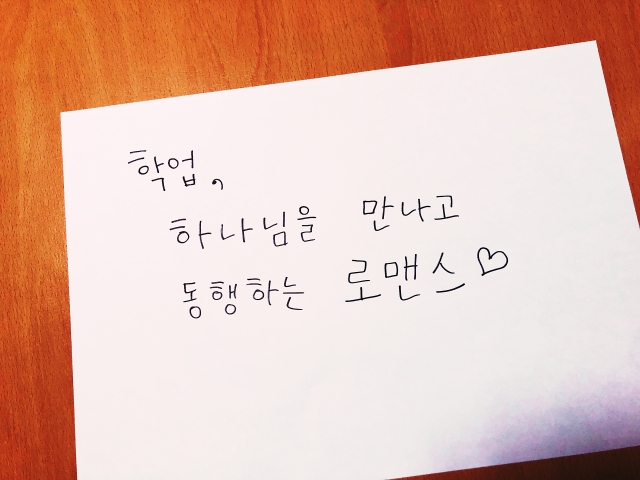 학업,
하나님을 만나고
동행하는 로맨스♡